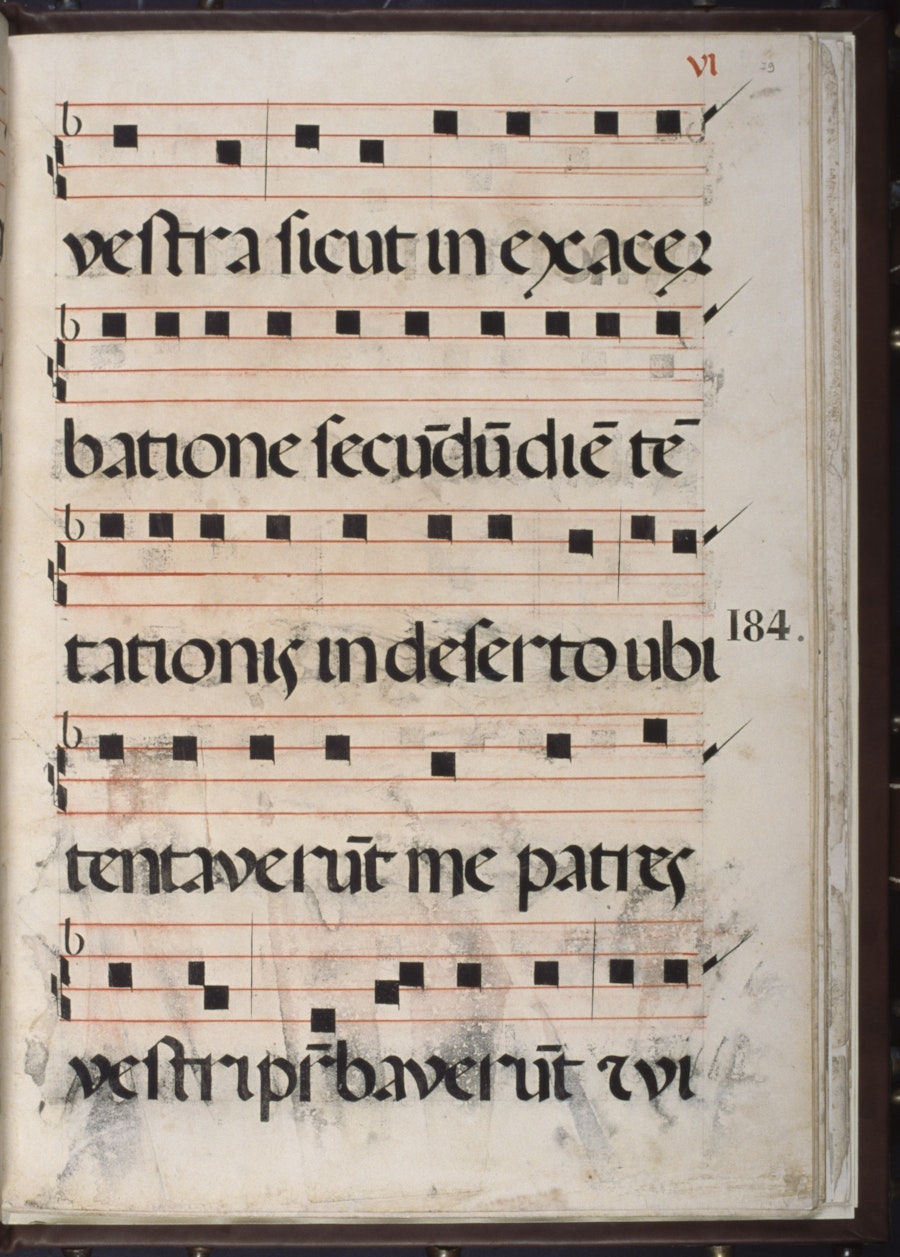 VI 79
vestra sicut in exacer
batione secūdū diē tē
tationis in deserto ubi
184.
tentaverūt me patres
vestri pr̄baverūt ⁊ vi